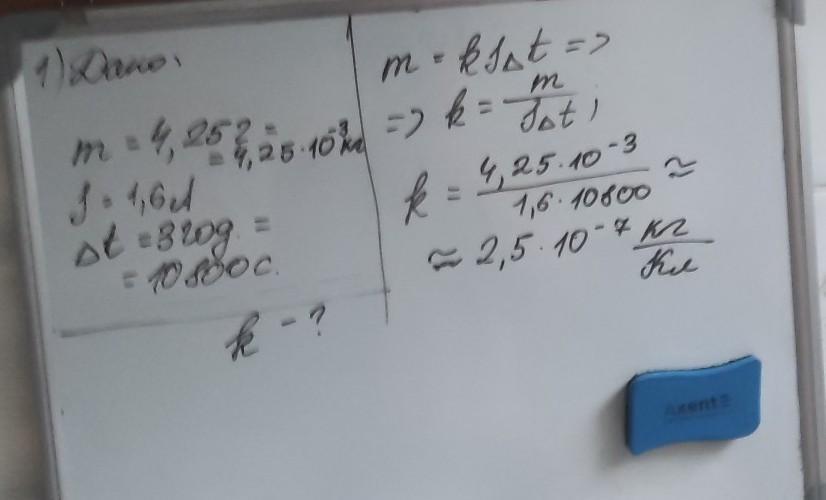 1) Дано:
m = 4,25г =
= 4,25·10⁻³кг
I = 1,6А
Δt = 3год. =
= 10800с.
k - ?
m = kIΔt =>
=> k = m/IΔt;
k = 4,25·10⁻³/1,6·10800 ≈
≈ 2,5·10⁻⁷ кг/Кл
Axent